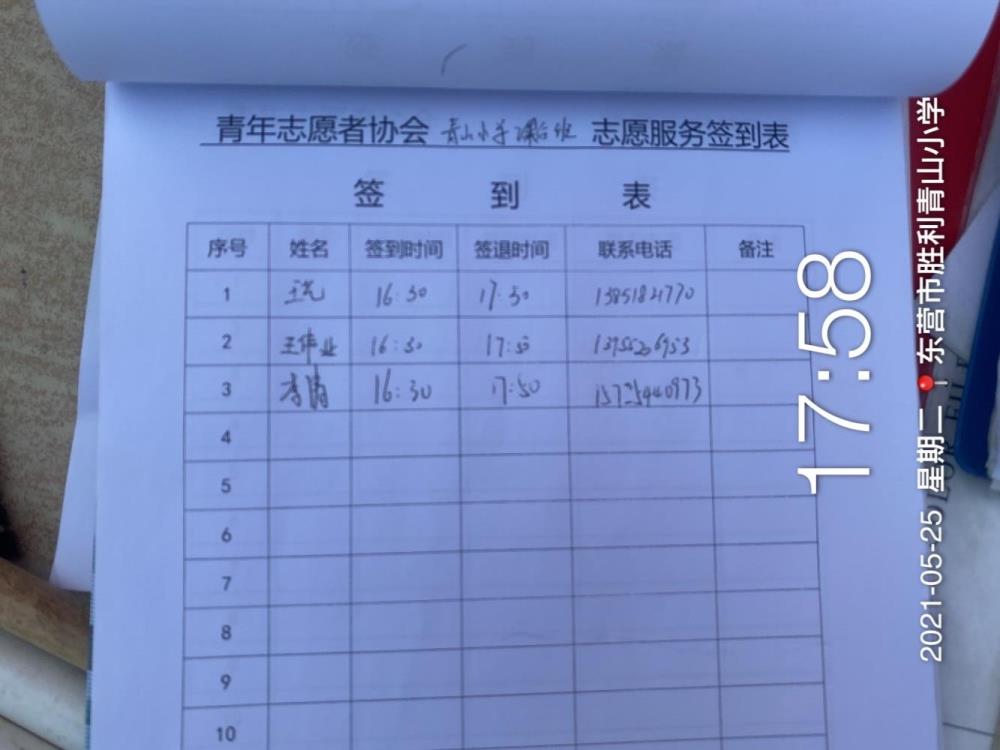 青年志愿者协会 青山小学课后班 志愿服务签到表
签 到 表
序号 姓名 签到时间 签退时间 联系电话 备注
1 16:30 17:50
2 王伟业 16:30 17:50
3 16:30 17:50 15725940973
4
5
6
7
8
9
10
17:58
2021-05-25 星期二 东营市胜利青山小学